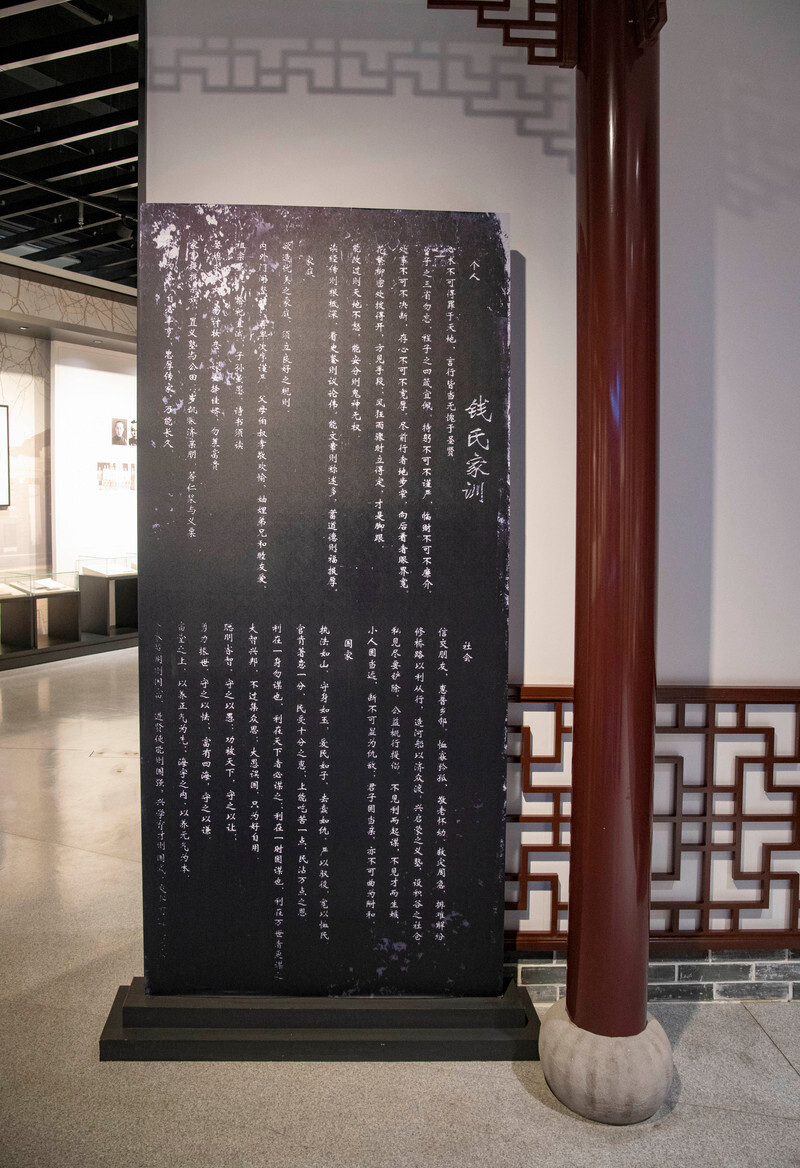 钱氏家训
个人
心术不可得罪于天地，言行皆当无愧于圣贤
曾子之三省勿忘，程子之四箴宜佩，持躬不可不谨严，临财不可不廉介，
处事不可不决断，存心不可不宽厚，尽前行者地步窄，向后看者眼界宽，
花繁柳密处拨得开，方见手段，风狂雨骤时立得定，才是脚跟，
能改过则天地不怒，能安分则鬼神无权
读经传则根柢深，看史鉴则议论伟，能文章则称述多，蓄道德则福报厚，
家庭
欲造优美之家庭，须立良好之规则
内外门闾 尊卑次序谨严，父母伯叔孝敬欢愉，妯娌弟兄和睦友爱，
祖宗 祭祀 子孙虽愚，诗书须读
娶媳 择佳婿，勿慕富贵
置义塾与公田，岁饥赈济亲朋，筹仁浆与义粟
自 忠厚传家，乃能长久
社会
信交朋友，惠普乡邻，恤寡矜孤，敬老怀幼，救灾周急，排难解纷，
修桥路以利从行，造河船以济众渡，兴启蒙之义塾，设积谷之社仓
私见尽要铲除，公益概行提倡，不见利而起谋，不见才而生嫉，
小人固当远，断不可显为仇敌；君子固当亲，亦不可曲为附和
国家
执法如山，守身如玉，爱民如子，去蠹如仇，严以驭役，宽以恤民
官肯著意一分，民受十分之惠，上能吃苦一点，民沾万点之恩
利在一身勿谋也，利在天下者必谋之；利在一时固谋也，利在万世者更谋之
大智兴邦，不过集众思；大愚误国，只为好自用
聪明睿智，守之以愚，功被天下，守之以让，
勇力振世，守之以怯，富有四海，守之以谦
庙堂之上，以养正气为先；海宇之内，以养元气为本，
则国富，进贤使能则国强，兴学育才则国盛，